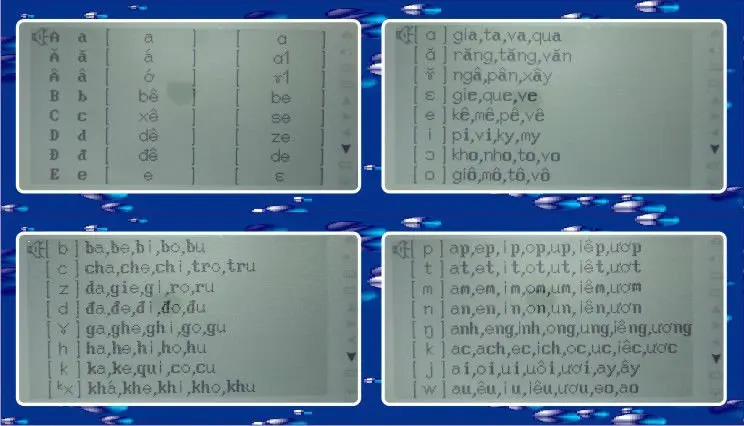 A a [ a ] [ ɑ ]
Ă ă [ á ] [ ɑ1 ]
Â â [ ớ ] [ ɤ1 ]
B b [ bê ] [ be ]
C c [ xê ] [ se ]
D d [ dê ] [ ze ]
Đ đ [ đê ] [ de ]
E e [ e ] [ ɛ ]
[ ɑ ] gia,ta,va,qua
[ ă ] răng,tăng,văn
[ ɤ̆ ] ngâ,pân,xây
[ ɛ ] gie,que,ve
[ e ] kê,mê,pê,vê
[ i ] pi,vi,ky,my
[ ɔ ] kho,nho,to,vo
[ o ] giô,mô,tô,vô
[ b ] ba,be,bi,bo,bu
[ c ] cha,che,chi,tro,tru
[ z ] da,gie,gi,ro,ru
[ d ] đa,đe,đi,đo,đu
[ ɣ ] ga,ghe,ghi,go,gu
[ h ] ha,he,hi,ho,hu
[ k ] ka,ke,qui,co,cu
[ ᵏx ] khá,khe,khi,kho,khu
[ p ] ap,ep,ip,op,up,iêp,ươp
[ t ] at,et,it,ot,ut,iêt,ươt
[ m ] am,em,im,om,um,iêm,ươm
[ n ] an,en,in,on,un,iên,ươn
[ ŋ ] anh,eng,inh,ong,ung,iêng,ương
[ k ] ac,ach,ec,ich,oc,uc,iêc,ươc
[ j ] ai,oi,ui,uôi,ươi,ay,ây
[ w ] au,êu,iu,iêu,ươu,eo,ao